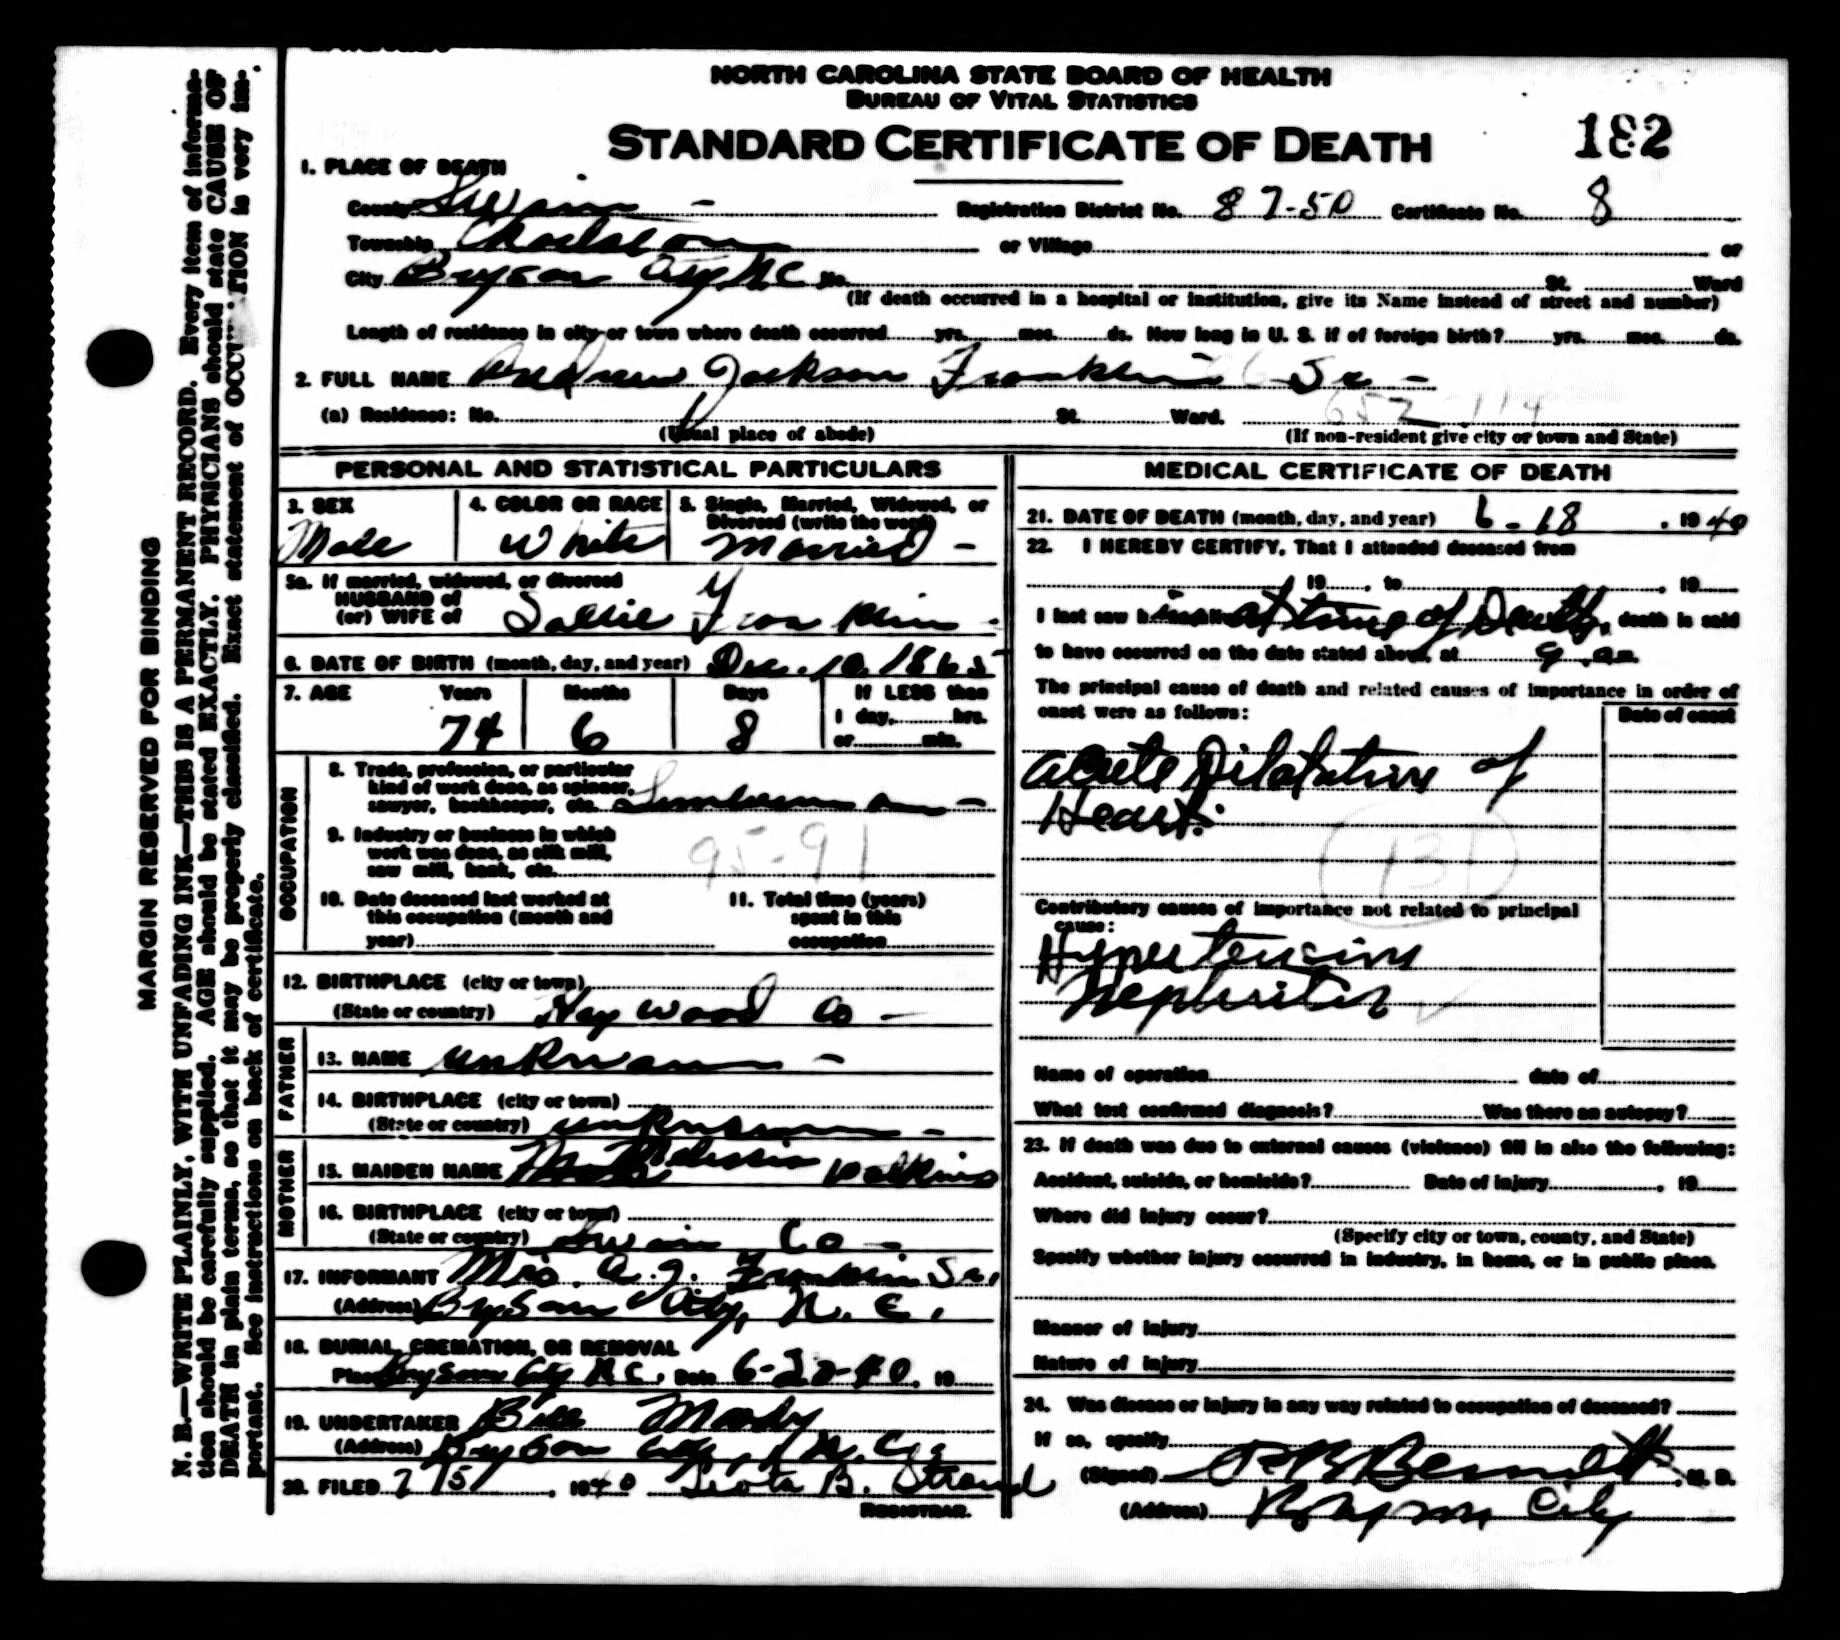 NORTH CAROLINA STATE BOARD OF HEALTH
BUREAU OF VITAL STATISTICS
STANDARD CERTIFICATE OF DEATH 182
1. PLACE OF DEATH
County Swain – Registration District No. 87-50 Certificate No. 8
Township Charleston or Village or
City Bryson City NC No. St. Ward
(If death occurred in a hospital or institution, give its Name instead of street and number)
Length of residence in city or town where death occurred yrs. mos. ds. How long in U. S. if of foreign birth? yrs. mos. ds.
2. FULL NAME Andrew Jackson Franklin Sr –
(a) Residence: No. St. Ward. 652 114
(Usual place of abode) (If non-resident give city or town and State)
PERSONAL AND STATISTICAL PARTICULARS
3. SEX Male
4. COLOR OR RACE White
5. Single, Married, Widowed, or Divorced (write the word) Married –
5a. If married, widowed, or divorced
HUSBAND of
(or) WIFE of Sallie Franklin -
6. DATE OF BIRTH (month, day, and year) Dec. 10, 1865
7. AGE Years Months Days If LESS than
74 6 8 1 day, hrs.
or min.
OCCUPATION
8. Trade, profession, or particular
kind of work done, as spinner,
sawyer, bookkeeper, etc. Lumberman –
9. Industry or business in which
work was done, as silk mill,
saw mill, bank, etc.
95-91
10. Date deceased last worked at
this occupation (month and
year)
11. Total time (years)
spent in this
occupation
12. BIRTHPLACE (city or town)
(State or country) Haywood Co –
FATHER
13. NAME unknown –
14. BIRTHPLACE (city or town)
(State or country) unknown –
MOTHER
15. MAIDEN NAME
16. BIRTHPLACE (city or town)
(State or country) Swain Co –
17. INFORMANT Mrs. A. J. Franklin Sr,
(Address) Bryson City, N. C.
18. BURIAL, CREMATION, OR REMOVAL
Place Bryson City N C. Date 6-20-40, 19
19. UNDERTAKER Bill Moody
(Address) Bryson City, N. C.
20. FILED 7/5, 1940 B.
REGISTRAR.
MEDICAL CERTIFICATE OF DEATH
21. DATE OF DEATH (month, day, and year) 6-18, 1940
22. I HEREBY CERTIFY, That I attended deceased from
, 19 , to , 19
I last saw h im at time of Death, death is said
to have occurred on the date stated above, at 9 a.m.
The principal cause of death and related causes of importance in order of
onset were as follows: Date of onset
Acute Dilatation of
Heart.
131
Contributory causes of importance not related to principal
cause:
Hypertensive
Nephritis
Name of operation date of
What test confirmed diagnosis? Was there an autopsy?
23. If death was due to external causes (violence) fill in also the following:
Accident, suicide, or homicide? Date of injury , 19
Where did injury occur?
(Specify city or town, county, and State)
Specify whether injury occurred in industry, in home, or in public place.
Manner of injury
Nature of injury
24. Was disease or injury in any way related to occupation of deceased?
If so, specify
(Signed) Bennett, M. D.
(Address) Bryson City
MARGIN RESERVED FOR BINDING
N. B.—WRITE PLAINLY, WITH UNFADING INK—THIS IS A PERMANENT RECORD. Every item of informa-
tion should be carefully supplied. AGE should be stated EXACTLY. PHYSICIANS should state CAUSE OF
DEATH in plain terms, so that it may be properly classified. Exact statement of OCCUPATION is very im-
portant. See instructions on back of certificate.